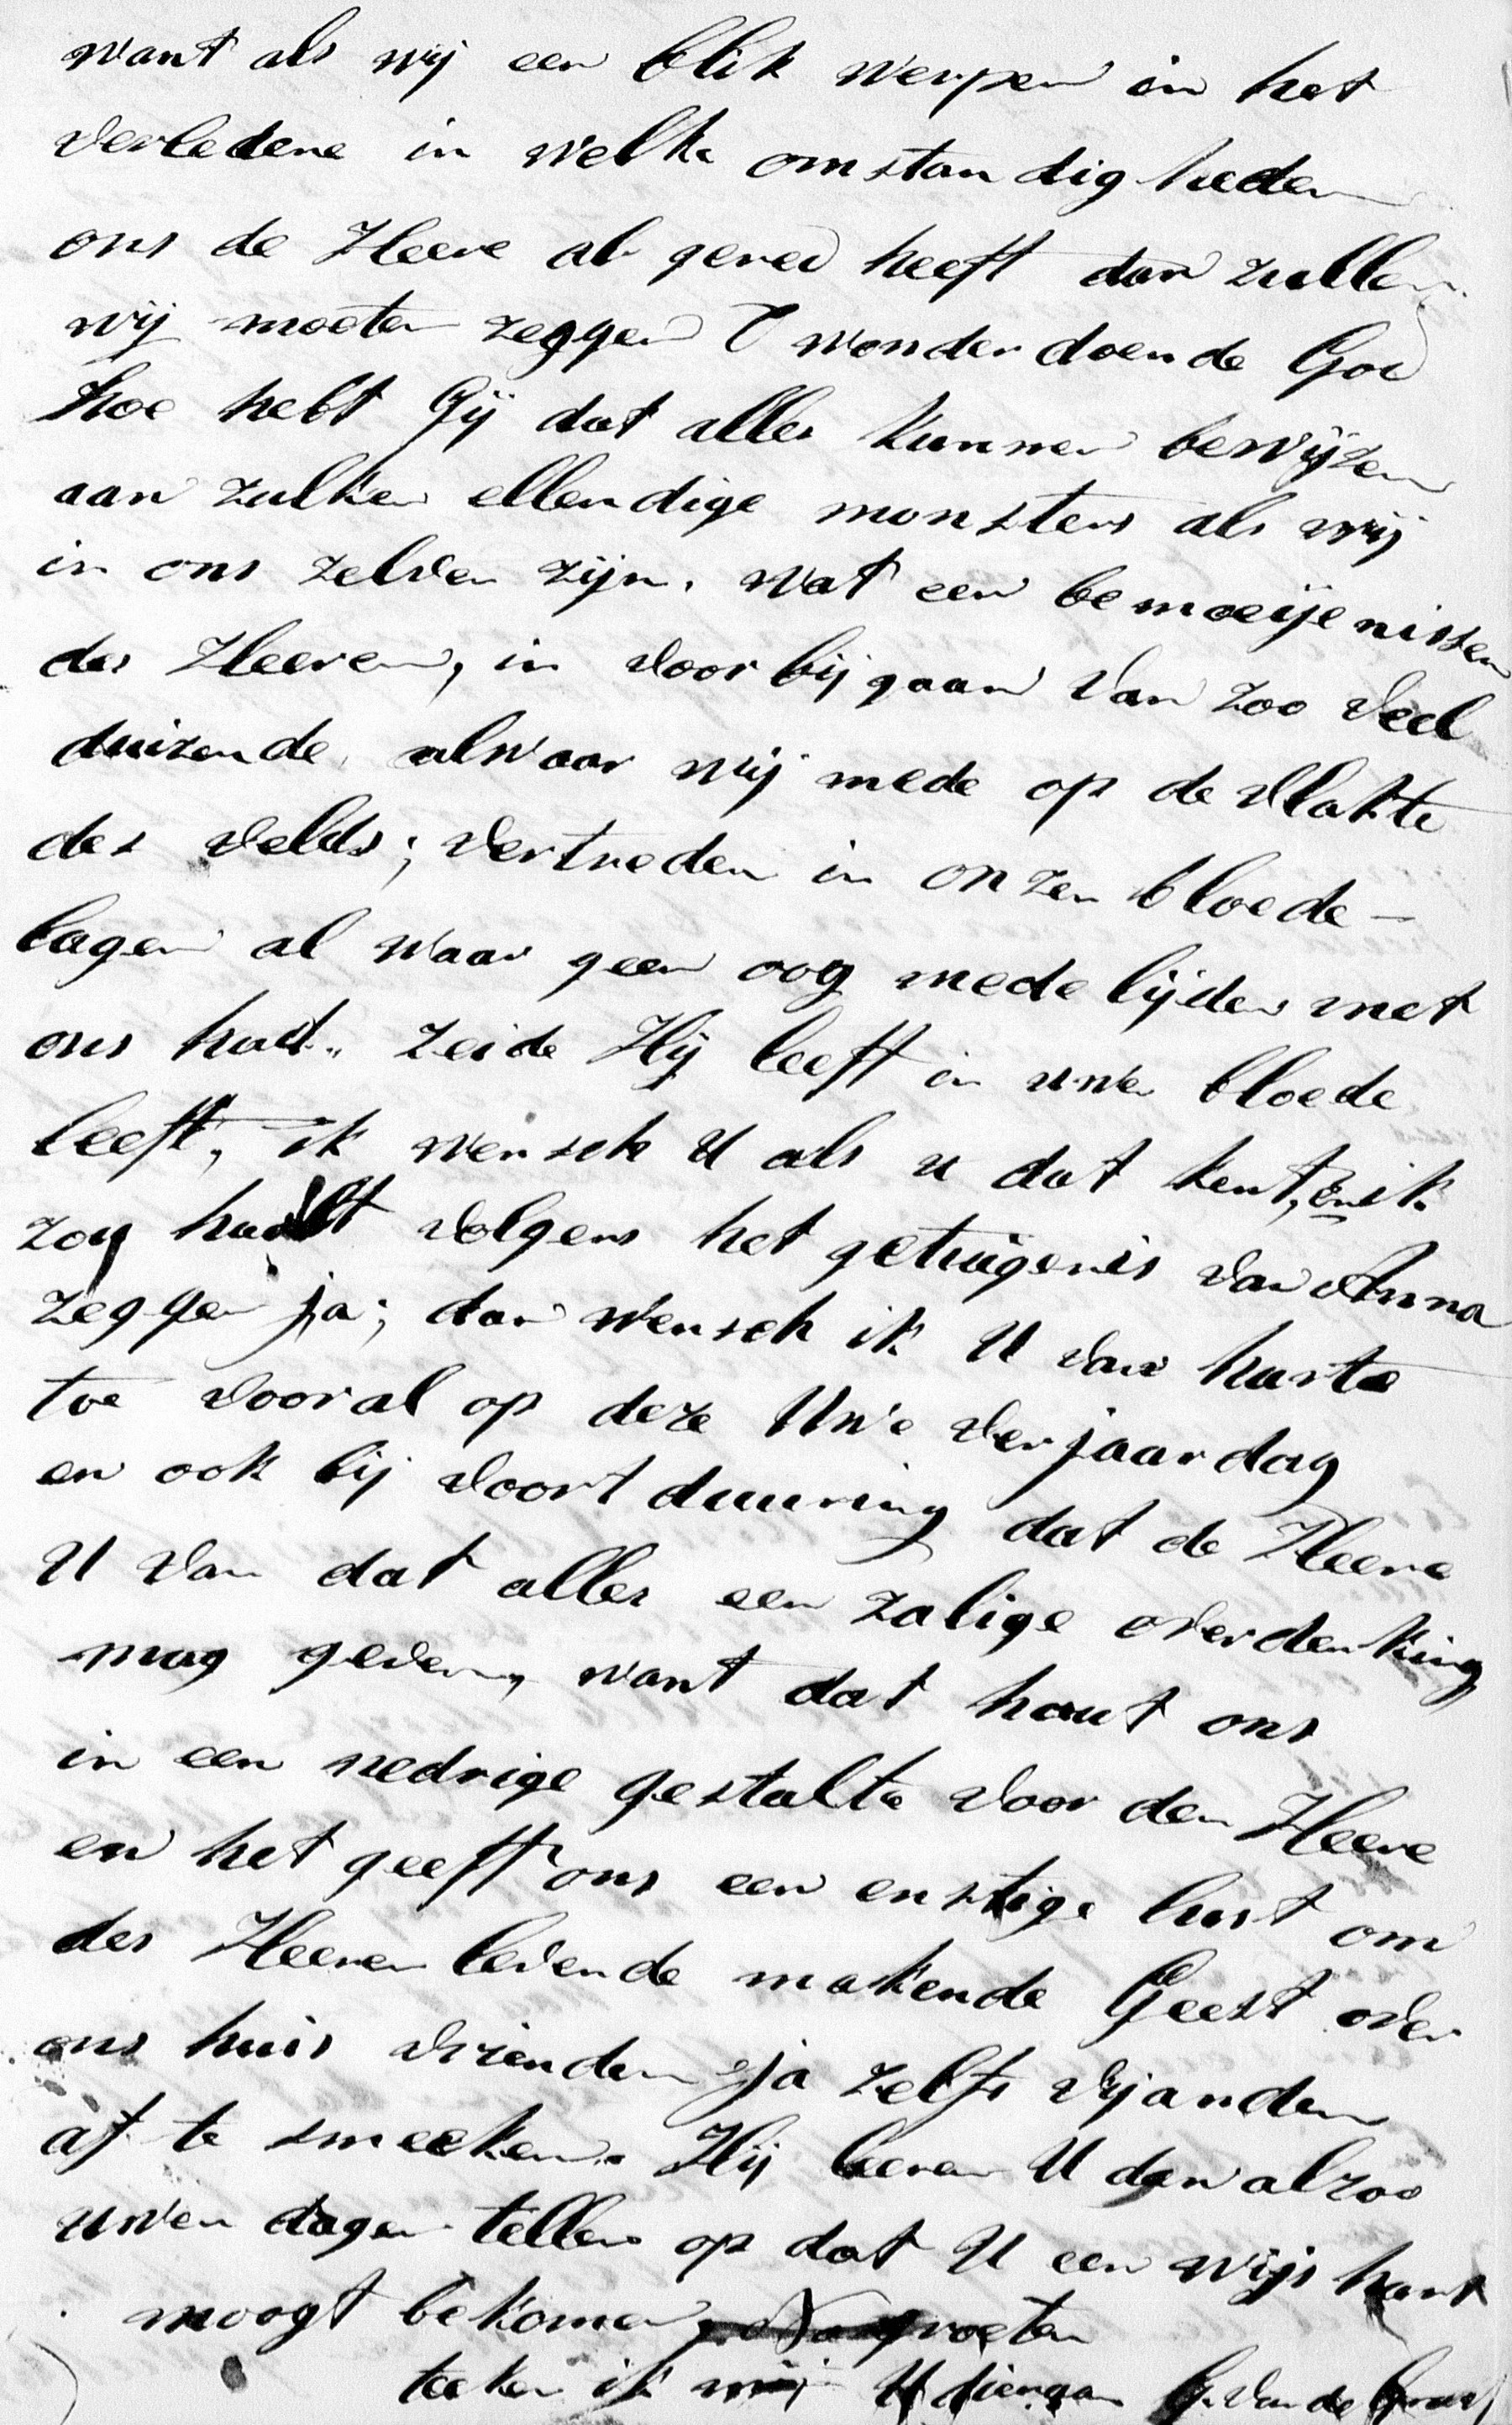 want als wij een blik werpen in het
verledene in welke omstandigheden
ons de Heere al gered heeft dan zullen
wij moeten zeggen O wonderdoende God
hoe hebt Gij dat alles kunnen bewijzen
aan zulken ellendige monsters als wij
in ons zelven zijn. wat een bemoeijenissen
des Heeren, in voorbijgaan van zoo veel
duizende, alwaar wij mede op de vlakte
des velds; vertreden in onzen bloede –
lagen al waar geen oog medelijden met
ons had„ zeide Hij leeft in uwen bloede
leeft, ik wensch U als u dat kent, en ik
zou haast volgens het getuigenis van Anna
zeggen ja; dan wensch ik U van harte
toe vooral op deze Uwe verjaardag
en ook bij voortduuring dat de Heere
U van dat alles een zalige overdenking
mag geven, want dat hout ons
in een nedrige gestalte voor den Heere
en het geeft ons een enstige lust om
des Heeren levendemakende Geest over
ons huis vrienden ja zelfs vijanden
af te smeeken. Hij leeren U dan alzoo
uwen dagen tellen op dat U een wijs hart
moogt bekomen, Na groeten
teeken ik mij U dienaar G. van de